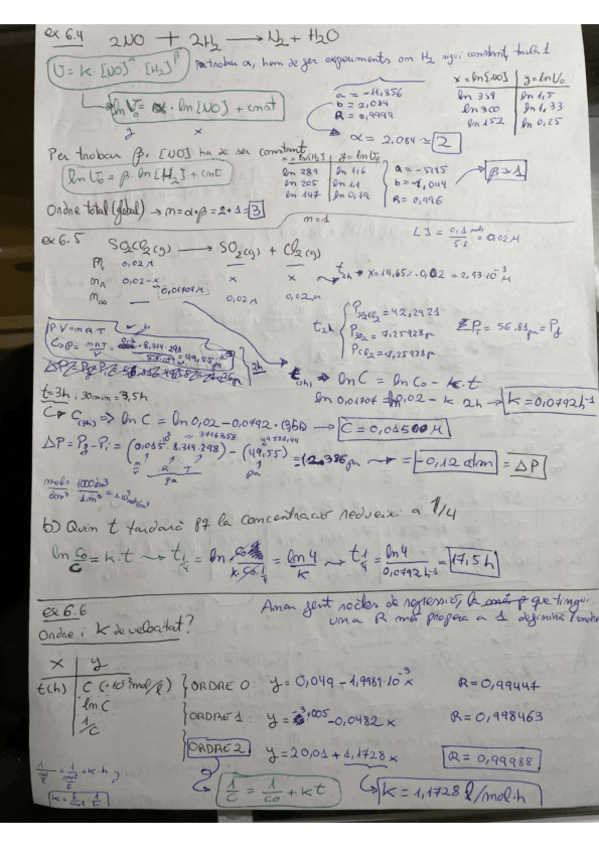 ex 6.4 2NO + 2H₂ → N₂ + H₂O
V = k · [NO]^α [H₂]^β
Per trobar α, hem de fer experiments on H₂ sigui constant
ln V₀ = α · ln [NO] + cnst
y x
a = -11,856
b = 2,084
R = 0,9999
α = 2,084 ≈ 2
x = ln [NO] y = ln V₀
ln 359 ln 1,5
ln 300 ln 1,33
ln 152 ln 0,25
Per trobar β, [NO] ha de ser constant
ln V₀ = β · ln [H₂] + cnt
x = ln [H₂] y = ln V₀
ln 289 ln 1,6
ln 205 ln 1,1
ln 147 ln 0,79
b = 1,044
R = 0,996
β = 1
Ordre total (global) → m = α + β = 2 + 1 = 3
m = 1
ex 6.5 SO₂Cl₂ (g) → SO₂ (g) + Cl₂ (g)
[ ] = 0,1 mols / 5 l = 0,02 M
0,02 M — —
0,02 - x x x
0,01707 M
m∞ — 0,02 M 0,02 M
t₂ₕ → x = 14,65% · 0,02 = 2,93·10⁻³ M
t₂ₕ
P SO₂Cl₂ = 42,2421
P SO₂ = 7,25928 pa
P Cl₂ = 7,25928 pa
Σ Pᵢ = 56.81 pa = Pf
P·V = n·R·T
2h
t (2h) → ln C = ln C₀ - k · t
ln 0,01707 = ln 0,02 - k · 2h → k = 0,0792 h⁻¹
t = 3h, 30min = 3,5h
C (3,5h) => ln C = ln 0,02 - 0,0792 · (3,5h) → C = 0,01500 M
ΔP = Pf - Pi = (0,015 · 8,314 · 298) - (49,55) = -12.386 pa → = -0,12 atm = ΔP
b) Quin t tardarà la concentració redueixi a 1/4
ln C₀/C = k · t → t 1/4 = ln C₀ / k · C₀ · 1/4 = ln 4 / k → t 1/4 = ln 4 / 0,0792 h⁻¹ = 17,5 h
ex 6.6
Ordre i k de velocitat?
Anar fent rectes de regressió, la que tingui
una R més propera a 1 definirà l'ordre
x y
t (h) C (·10⁻³ mol/l) ORDRE 0: y = 0,049 - 1,9989·10⁻³ x R = 0,99447
ln C ORDRE 1: y = -3,005 - 0,0482 x R = 0,998463
1/C ORDRE 2 y = 20,01 + 1,1728 x R = 0,99988
1/C = 1/C₀ + k t
k = 1,1728 l/mol·h